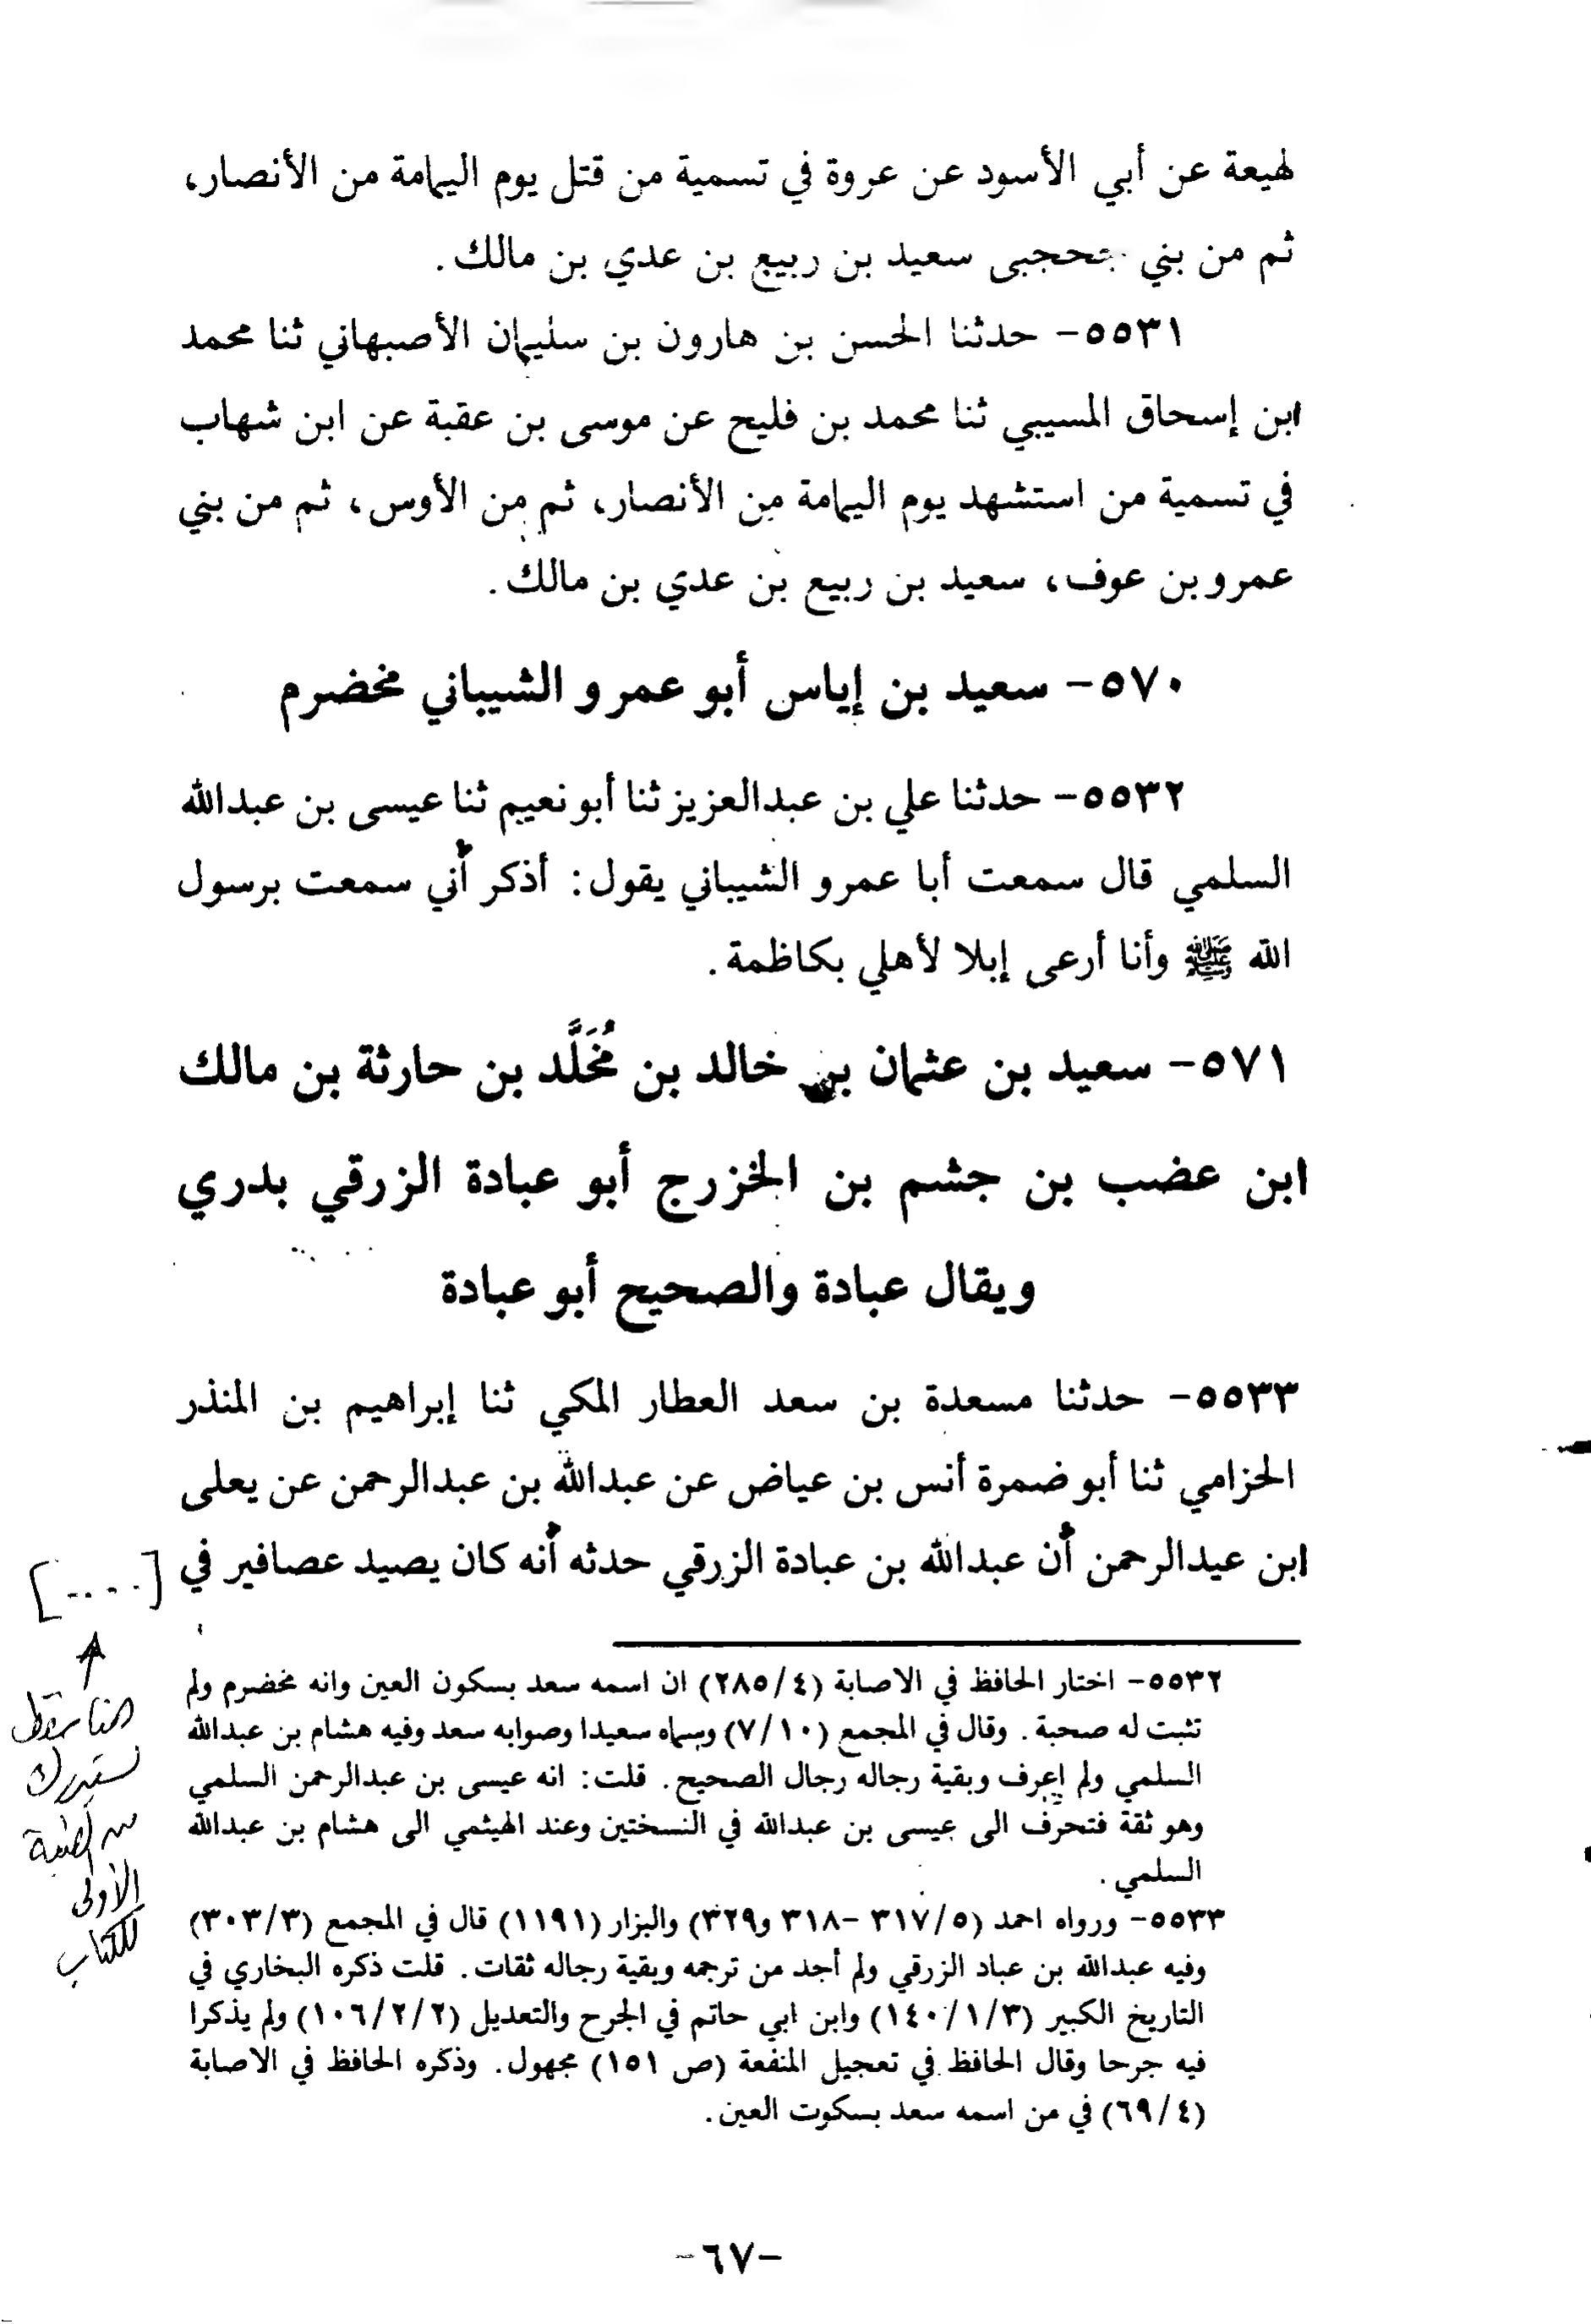 لهيعة عن أبي الأسود عن عروة في تسمية من قتل يوم اليمامة من الأنصار،
ثم من بني جحجبى سعيد بن ربيع بن عدي بن مالك.
٥٥٣١- حدثنا الحسن بن هارون بن سليمان الأصبهاني ثنا محمد
ابن إسحاق المسيبي ثنا محمد بن فليح عن موسى بن عقبة عن ابن شهاب
في تسمية من استشهد يوم اليمامة من الأنصار، ثم من الأوس، ثم من بني
عمرو بن عوف، سعيد بن ربيع بن عدي بن مالك.
٥٧٠- سعيد بن إياس أبو عمرو الشيباني مخضرم
٥٥٣٢- حدثنا علي بن عبدالعزيز ثنا أبو نعيم ثنا عيسى بن عبدالله
السلمي قال سمعت أبا عمرو الشيباني يقول: أذكر أني سمعت برسول
الله ﷺ وأنا أرعى إبلا لأهلي بكاظمة.
٥٧١- سعيد بن عثمان بن خالد بن مُخَلَّد بن حارثة بن مالك
ابن عضب بن جشم بن الخزرج أبو عبادة الزرقي بدري
ويقال عبادة والصحيح أبو عبادة
٥٥٣٣- حدثنا مسعدة بن سعد العطار المكي ثنا إبراهيم بن المنذر
الحزامي ثنا أبو ضمرة أنس بن عياض عن عبدالله بن عبدالرحمن عن يعلى
ابن عيدالرحمن أن عبدالله بن عبادة الزرقي حدثه أنه كان يصيد عصافير في [....]
هنا سقط
نستدرك
من الطبعة
الأولى
للكتاب
٥٥٣٢- اختار الحافظ في الاصابة (٢٨٥/٤) ان اسمه سعد بسكون العين وانه مخضرم ولم
تثبت له صحبة. وقال في المجمع (٧/١٠) وسماه سعيدا وصوابه سعد وفيه هشام بن عبدالله
السلمي ولم اعرف وبقية رجاله رجال الصحيح. قلت: انه عيسى بن عبدالرحمن السلمي
وهو ثقة فتحرف الى عيسى بن عبدالله في النسختين وعند الهيثمي الى هشام بن عبدالله
السلمي.
٥٥٣٣- ورواه احمد (٣١٧/٥ -٣١٨ و٣٢٩) والبزار (١١٩١) قال في المجمع (٣٠٣/٣)
وفيه عبدالله بن عباد الزرقي ولم أجد من ترجمه وبقية رجاله ثقات. قلت ذكره البخاري في
التاريخ الكبير (١٤٠/١/٣) وابن ابي حاتم في الجرح والتعديل (١٠٦/٢/٢) ولم يذكرا
فيه جرحا وقال الحافظ في تعجيل المنفعة (ص ١٥١) مجهول. وذكره الحافظ في الاصابة
(٦٩/٤) في من اسمه سعد بسكوت العين.
-٦٧-